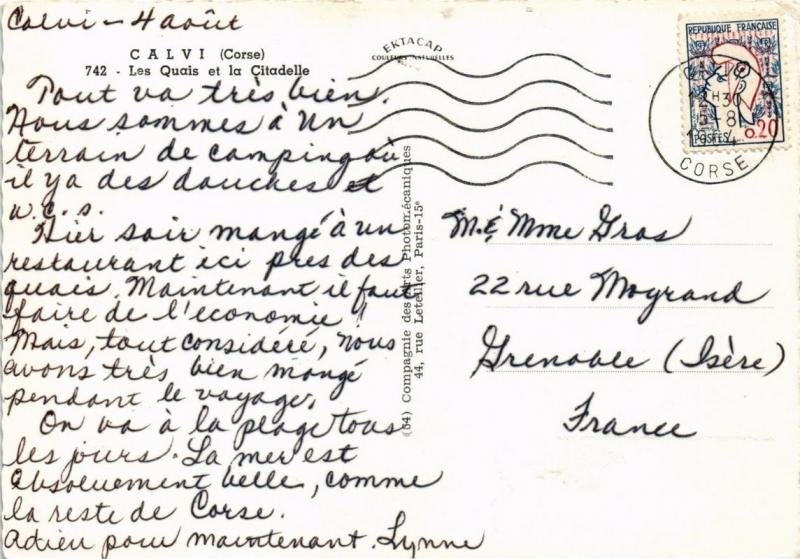 Calvi - 4 août
CALVI (Corse)
742 - Les Quais et la Citadelle
EKTACAP
COULEURS NATURELLES
Tout va très bien.
Nous sommes à un
terrain de camping où
il y a des douches et
w.c.s.
Hier soir mangé à un
restaurant ici pres des
quais. Maintenant il faut
faire de l'economie!
Mais, tout considéré, nous
avons très bien mangé
pendant le voyage.
On va à la plage tous
les jours. La mer est
absoluement belle, comme
la reste de Corse.
Adieu pour maintenant. Lynne
(54) Compagnie des Arts Photomécaniques
44, rue Letellier, Paris-15e
REPUBLIQUE FRANÇAISE
POSTES
0,20
CORSE
M. & Mme Gros
22 rue Mogrand
Grenoble (Isère)
France